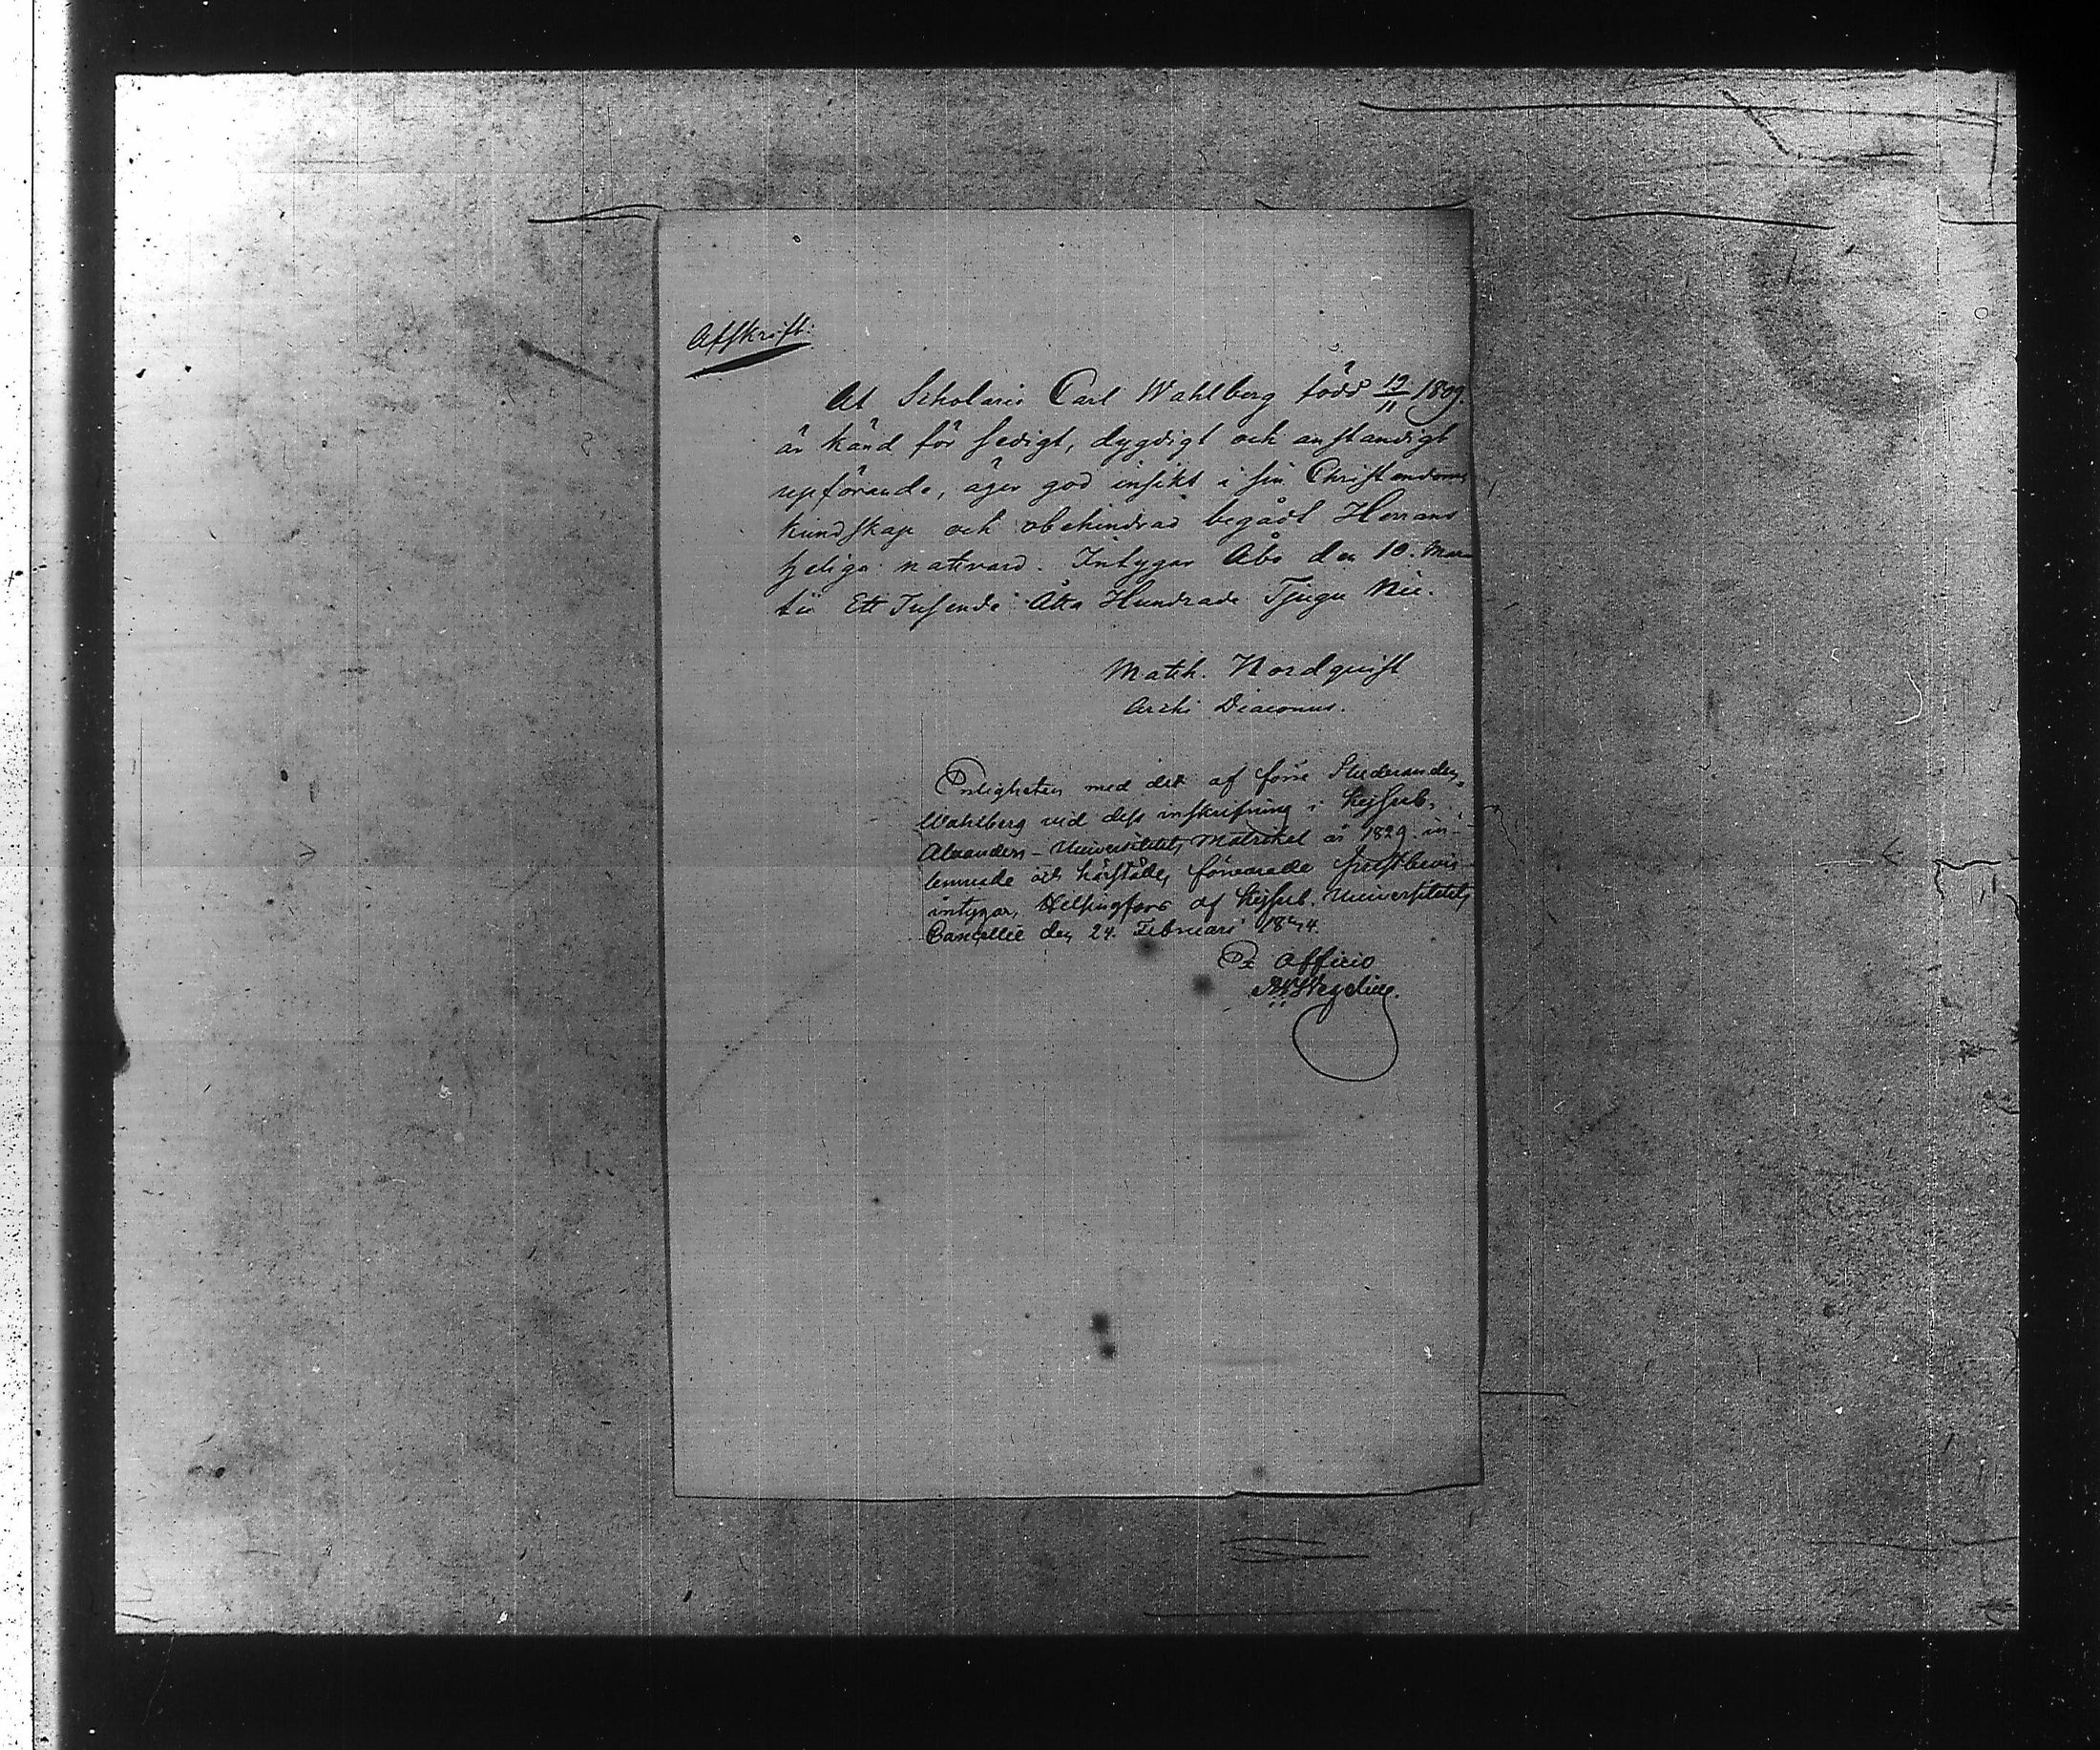 Afskrift:
At Scholaris Carl Wahlberg född 19/11 1809.
är känd för sedigt, dygdigt och anständigt
uppförande, äger god insikt i sin Christendoms
kundskap och obehindrad begådt Herrans
heliga nattvard. Intygar Åbo den 10. Mar-
tii Ett Tusende Åtta Hundrade Tjugu Nie.
Math. Nordquist
Archi Diaconus.
Enligheten med det af förre Studeranden
Wahlberg vid dess inskrifning i Kejserl.
Alexanders-Universitetets Matrikel år 1829 in-
lemnade och härstädes förvarade prestbevis
intygar, Helsingfors af Kejserl. Universitetets
Cancellie den 24. Februari 1844.
Ex Officio